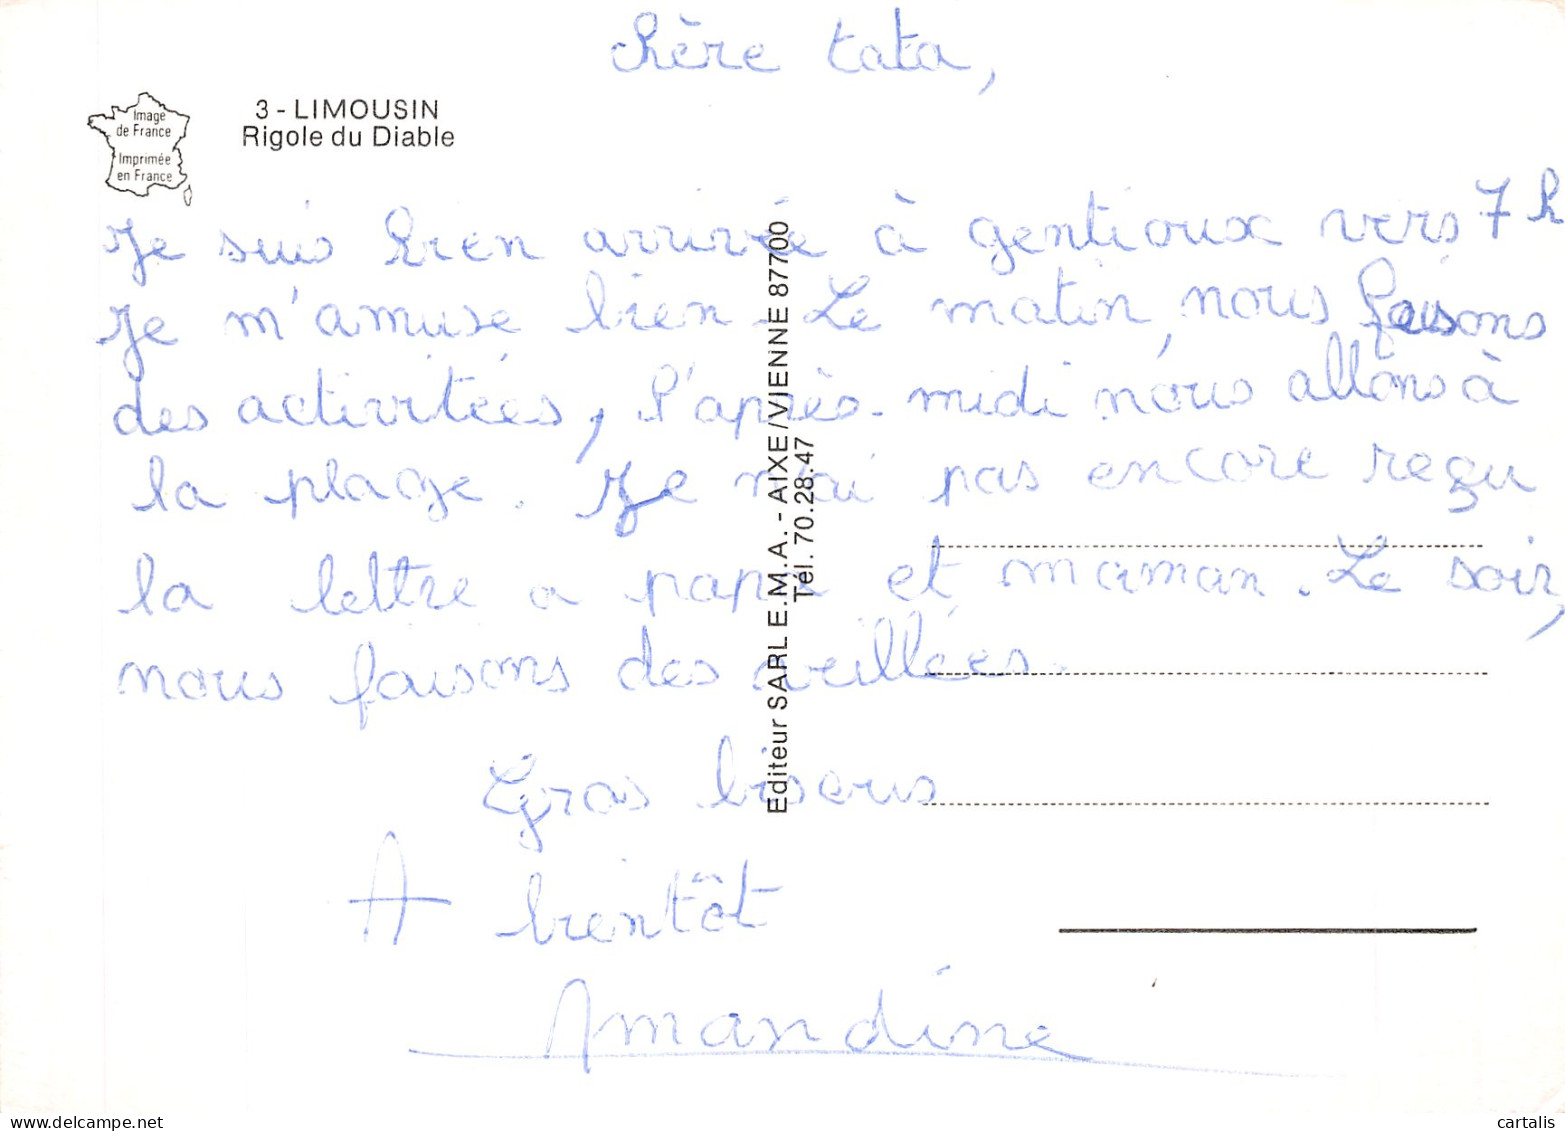 chère tata,
Image
de France
Imprimée
en France
3 - LIMOUSIN
Rigole du Diable
Je suis bien arrivée à gentioux vers 7 h
Je m'amuse bien. Le matin, nous faisons
des activitées, l'après-midi nous allons à
la plage. Je n'ai pas encore reçu
la lettre a papa et maman. Le soir,
nous faisons des veillées.
Gros bisous
A bientôt
Amandine
Editeur SARL E.M.A. - AIXE/VIENNE 87700
Tél. 70.28.47
delcampe.net
cartalis